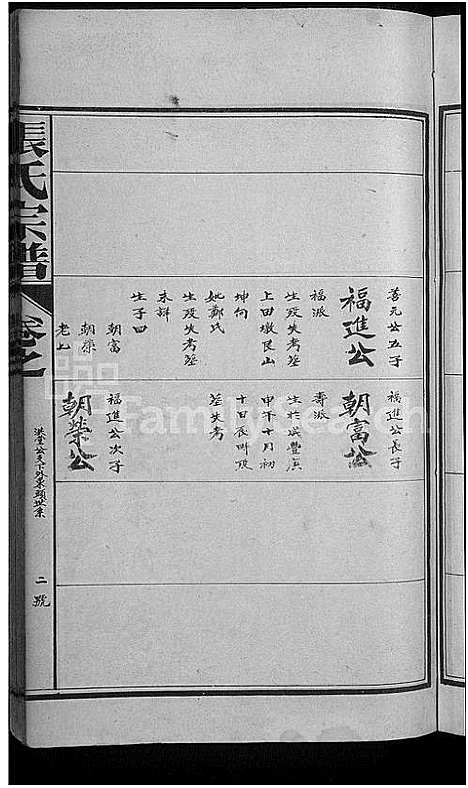 善元公五子
福進公
福派
生歿失考塟
上田墩艮山
坤向
妣鄭氏
生歿失考塟
未詳
生子四
朝富
朝榮
老上
福進公長子
朝富公
壽派
生於咸豐庚
申年十月初
十日辰時歿
塟失考
福進公次子
朝榮公
張氏宗譜
卷之
洪堂公支下外東頭世系
二號
FamilySearch